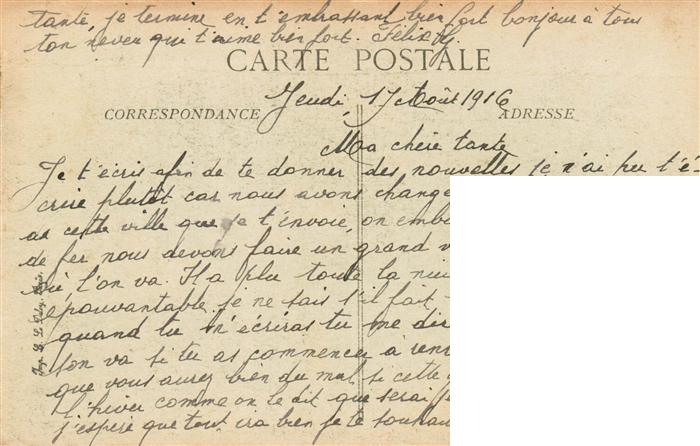 tante, je termine en t'embrassant bien fort bonjour à tous
ton neveu qui t'aime bien fort. Félix G.
CARTE POSTALE
Jeudi, 17 Août 1916
CORRESPONDANCE ADRESSE
Ma chère tante
Je t'écris afin de te donner des nouvelles je n'ai pu t'é-
crire plutôt car nous avons changé
as cette ville que je t'envoie, on emb
de fer nous devons faire un grand v
où l'on va. Il a plu toute la nui
épouvantable, je ne sais s'il fait
quand tu m'écriras tu me dir
l'on va si tu as commencer à ren
que vous aurez bien du mal si cette
l'hiver comme on le dit que serai
j'espère que tout ira bien je te souhai